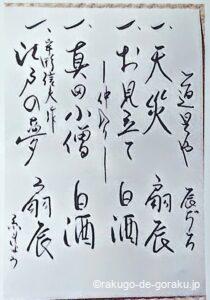 道具や 辰ぢろ
一、天災 扇辰
一、お見立て 白酒
―仲入り―
一、真田小僧 白酒
宇野信夫作
一、江戸の夢 扇辰
©rakugo-de-goraku.jp